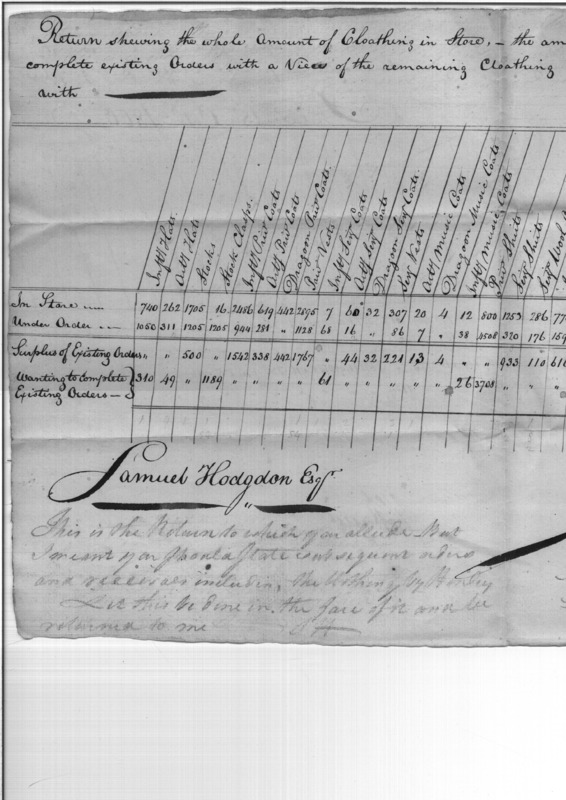 Return shewing the whole Amount of Cloathing in Store, – the am
complete existing Orders with a View of the remaining Cloathing
with
Infy Hats
Arty Hats
Stocks
Stock Clasps
Infy Priv Coats
Arty Priv Coats
Dragoon Priv Coats
Priv Vests
Infy Serj Coats
Arty Serj Coats
Dragoon Serj Coats
Serj Vests
Arty Music Coats
Dragoon Music Coats
Infy Music Coats
Priv Shirts
Serj Shirts
In Store 740 262 1705 16 2486 619 442 2895 7 60 32 307 20 4 12 800 1253 286 77
Under Order 1050 311 1205 1205 944 281 " 1128 68 16 " 86 7 " 38 4508 320 176 159
Surplus of Existing Orders " " 500 " 1542 338 442 1767 " 44 32 221 13 4 " " 933 110 616
Wanting to complete } 310 49 " 1189 " " " " 61 " " " " " 26 3708 " " "
Existing Orders –
Samuel Hodgdon Esqr
This is the Return to which you allude But
I meant you should State subsequent orders
and receivals including the Clothing by
Let this be done in the face of it and be
returned to me SH